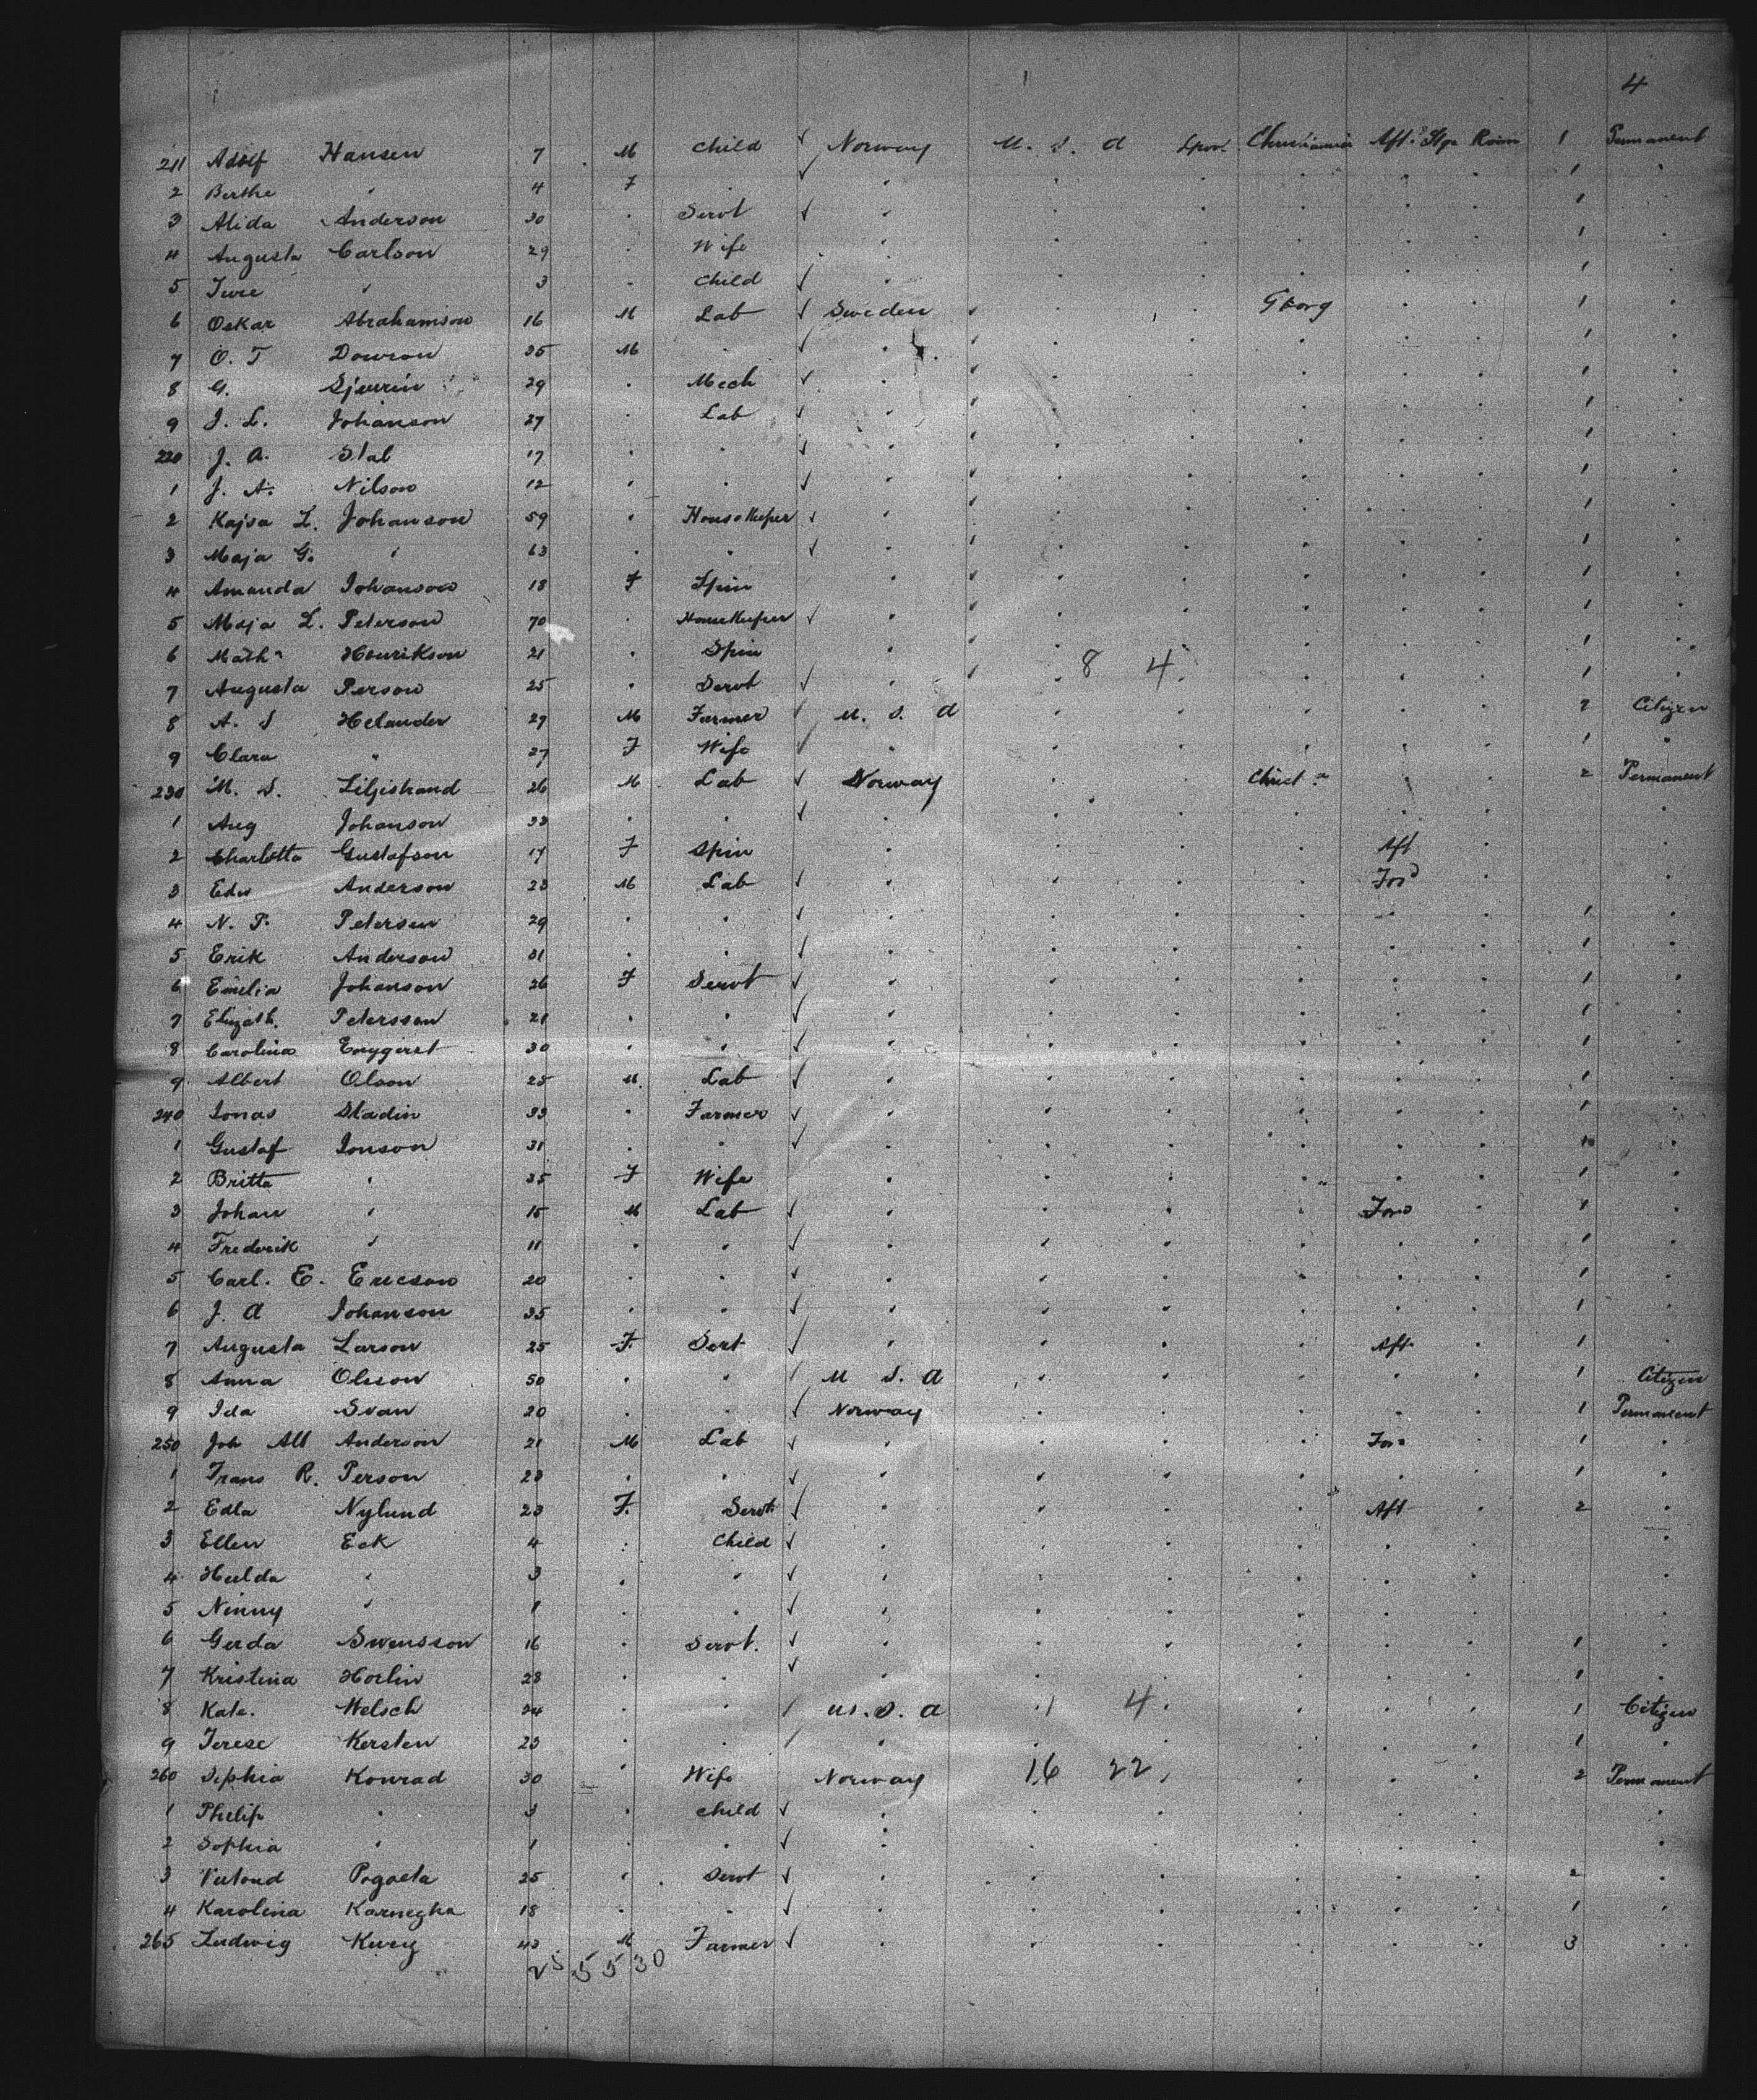 4
211 Adolf Hansen 7 M Child ✓ Norway U. S. A Christiania Aft. Stge Room 1 Permanent
2 Berthe " 4 F " ✓ " " " " " 1 "
3 Alida Anderson 30 " Servt ✓ " " " " " 1 "
4 Augusta Carlson 29 " Wife " " " " " 1 "
5 Ture " 3 " Child ✓ " " " " " 1 "
6 Oskar Abrahamson 16 M Lab ✓ Sweden " " Gborg " " 1 "
7 O. T 35 M " ✓ " " " " " 1 "
8 G. 29 " Mech ✓ " " " " " 1 "
9 J. L. Johanson 27 " Lab ✓ " " " " " 1 "
220 J. A. Stal 17 " " ✓ " " " " " 1 "
1 J. A. Nilson 12 " " ✓ " " " " " 1 "
2 Kajsa L. Johanson 59 " House Keeper ✓ " " " " " 1 "
3 Maja G. " 63 " " ✓ " " " " " 1 "
4 Amanda Johanson 18 F Spin " " " " " 1 "
5 Maja L. Peterson 70 " House Keeper ✓ " " " " " 1 "
6 Math a Henrikson 21 " Spin " " " " " 1 "
7 Augusta Person 25 " Servt ✓ " " 8 4 " " " 1 "
8 A. S Helander 29 M Farmer ✓ U. S. A " " " " 2 Citizen
9 Clara " 27 F Wife ✓ " " " " " 1 "
230 M. S. Liljestrand 26 M Lab ✓ Norway " Christ a " " 2 Permanent
1 Aug Johanson 33 " " ✓ " " " " " "
2 Charlotta Gustafson 17 F Spin " " " Aft " "
3 Edw Anderson 23 M Lab ✓ " " " For'd " "
4 N. P. Petersen 29 " " ✓ " " " " " 1 "
5 Erik Anderson 31 " " ✓ " " " " " 1 "
6 Emelia Johanson 26 F Servt ✓ " " " " " 1 "
7 Elizath. Petersson 21 " " ✓ " " " " " 1 "
8 Carolina 30 " " ✓ " " " " " 1 "
9 Albert Olson 25 M. Lab ✓ " " " " " 1 "
240 Jonas Sladin 33 " Farmer ✓ " " " " " 1 "
1 Gustaf Jonson 31 " " ✓ " " " " " "
2 Britta " 35 F Wife " " " " " 1 "
3 Johan " 15 M Lab ✓ " " " For'd " 1 "
4 Frederik " 11 " " ✓ " " " " " 1 "
5 Carl. E. Ericson 20 " " ✓ " " " " " 1 "
6 J. A Johanson 35 " " ✓ " " " " " 1 "
7 Augusta Larson 25 F. Sert ✓ " " " Aft " 1 "
8 Anna Olsson 50 " " / U S. A " " " " 1 Citizen
9 Ida Svan 20 " " ✓ Norway " " " " 1 Permanent
250 Joh Alb Anderson 21 M Lab ✓ " " " For'd " 1 "
1 Frans R. Person 23 " " ✓ " " " " " 1 "
2 Edla Nylund 23 F. Servt ✓ " " " Aft " 2 "
3 Ellen Eck 4 " Child ✓ " " " " " "
4 Hulda " 3 " " ✓ " " " " " "
5 Ninny " 1 " " ✓ " " " " " "
6 Gerda Swensson 16 " Servt. ✓ " " " " " 1 "
7 Kristina Horlin 23 " " ✓ " " " " " 1 "
8 Kate. Welsch 24 " " / U. S. A 1 4 " " " 1 Citizen
9 Terese Kersten 23 " " / " " " " " 1 "
260 Sophia Konrad 30 " Wife Norway 16 22 " " " 2 Permanent
1 Philip " 3 " Child ✓ " " " " " "
2 Sophia " 1 " " ✓ " " " " " "
3 Pogaeta 25 " Servt ✓ " " " " " 2 "
4 Karolina Karnegha 18 " " ✓ " " " " " 1 "
265 Ludwig 43 M Farmer ✓ " " " " " 3 "
25 5 5 30